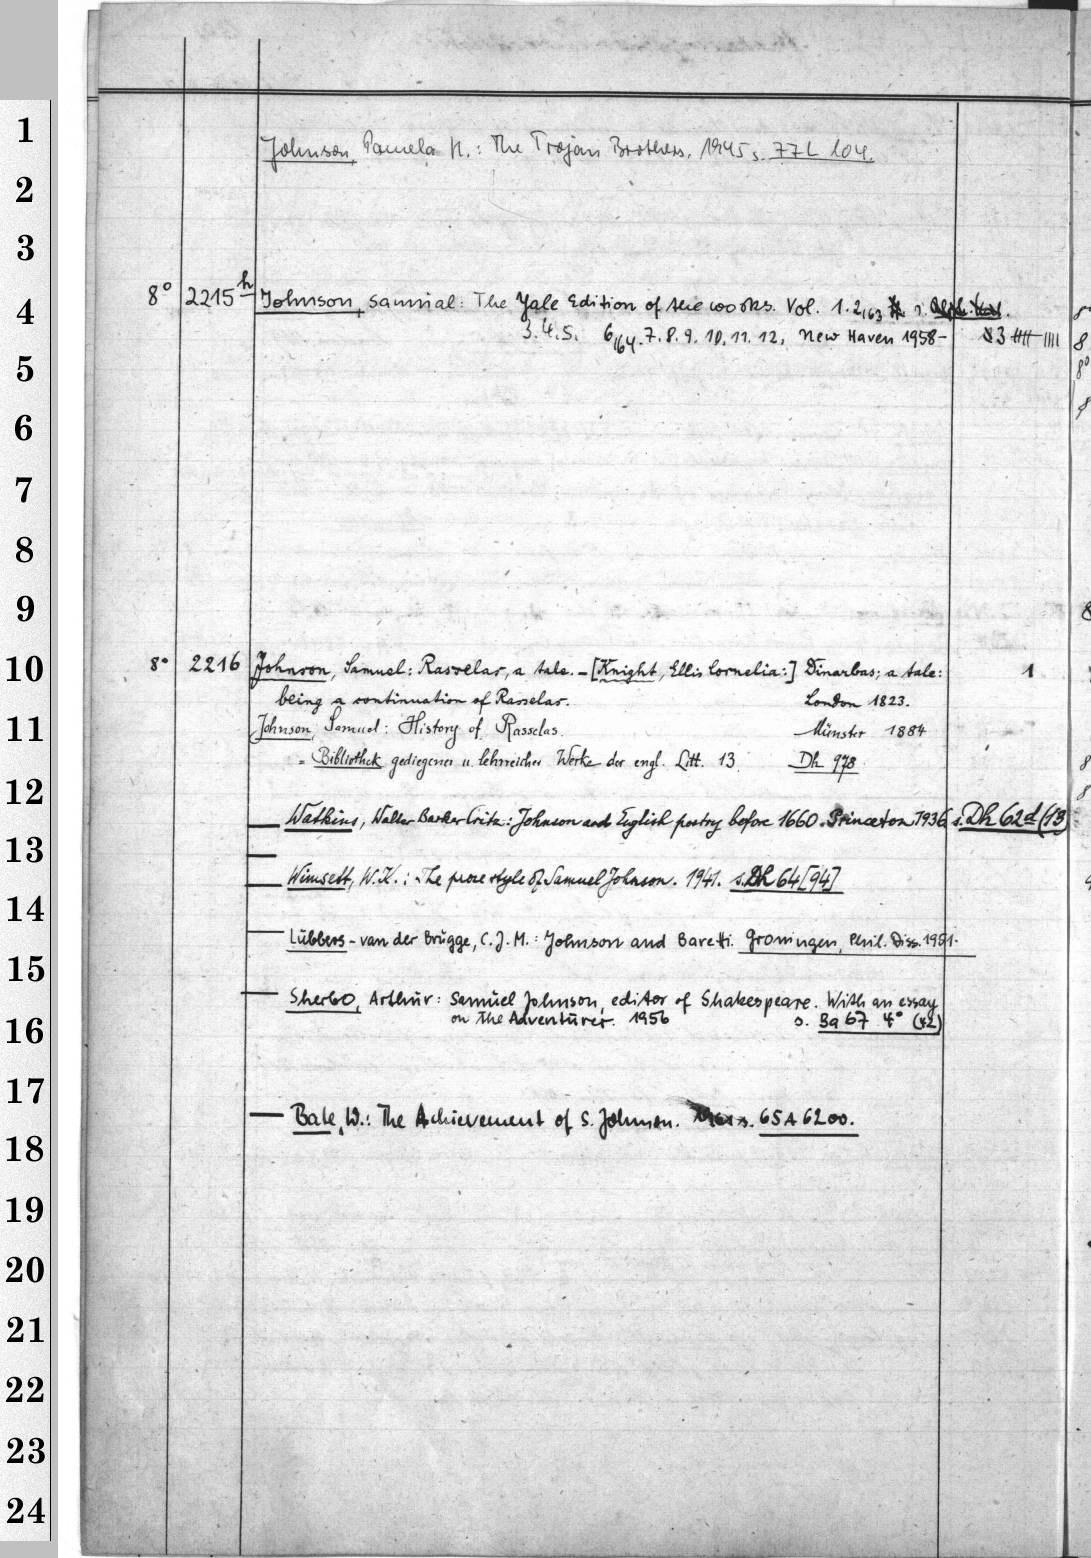 Johnson, Pamela H.: The Trojan Brothers. 1945 s. 77L 104.
8° 2215h Johnson, Samuial: The Yale Edition of the works. Vol. 1.2,163
3.4.5. 6,164.7.8.9.10.11.12, New Haven 1958–
8° 2216 Johnson, Samuel: Rasselas, a tale. – [Knight, Ellis Cornelia:] Dinarbas; a tale: 1
being a continuation of Rasselas. London 1823.
Johnson, Samuel: History of Rasselas. Münster 1884
= Bibliothek gediegener u. lehrreicher Werke der engl. Litt. 13. Dh 978.
— Watkins, Walter Barker Critz: Johnson and English poetry before 1660. Princeton 1936 s. Dh 62d (13)
— Wimsett, W.K.: The prose style of Samuel Johnson. 1941. s. Dh 64[94]
— Lübbers-van der Brügge, C.J.M.: Johnson and Baretti. Groningen, Phil. Diss. 1951.
— Sherbo, Arthur: Samuel Johnson, editor of Shakespeare. With an essay
on The Adventurer. 1956 s. Ba 67 4° (42)
— Bate, W.: The Achievement of S. Johnson. s. 65 A 6200.
1
2
3
4
5
6
7
8
9
10
11
12
13
14
15
16
17
18
19
20
21
22
23
24